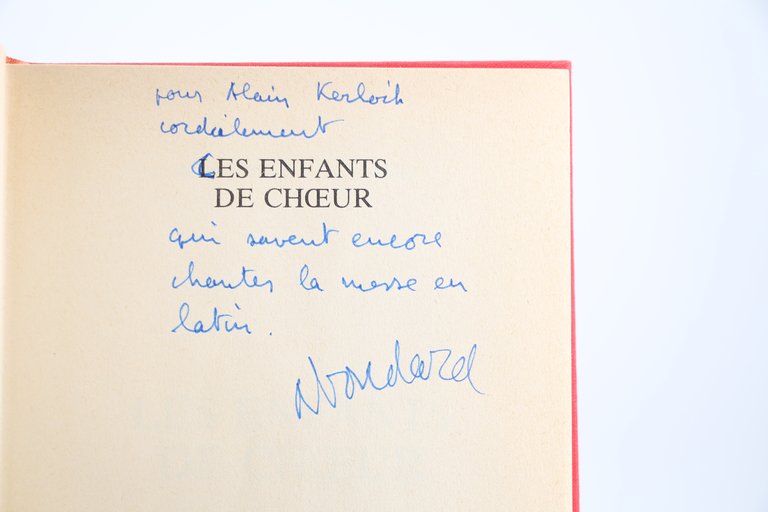 pour Alain Kerloïk
cordialement
LES ENFANTS
DE CHŒUR
qui savent encore
chanter la messe en
latin.
ABoudard